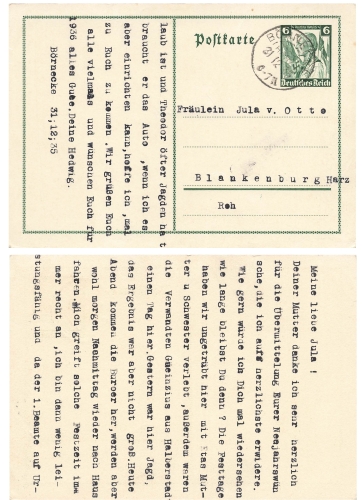 Postkarte
6 6
Deutsches Reich
Fräulein Jula v. Otto
Blankenburg Harz
Roh
Meine liebe Jula !
Deiner Mutter danke ich sehr herzlich
für die Übermittelung Eurer Neujahrswün
sche,die ich aufs herzlichste erwidere.
Wie gern würde ich Dich mal wiedersehen
wie lange bleibst Du denn ? Die Festtage
haben wir ungetrübt hier mit Etas Mut-
ter u Schwester verlebt .außerdem waren
die Verwandten Gneinzius aus Halberstadt
einen Tag hier.Gestern war hier Jagd,
das Ergebnis war aber nicht groß.Heute
Abend kommen die Burger her,werden aber
wohl morgen Nachmittag wieder nach Haus
fahren.Mich greift solche Festzeit im=
mer recht an ,ich bin dann wenig lei-
stungsfähig und da der 1.Beamte auf Ur-
laub ist und Theodor öfter Jagden hat
braucht er das Auto ,wenn ich es
aber einrichten kann,hoffe ich ,mal
zu Euch zu kommen .Wir grüßen Euch
alle vielmals und wünschen Euch für
1936 alles Gute.Deine Hedwig.
Börnecke 31;12;35